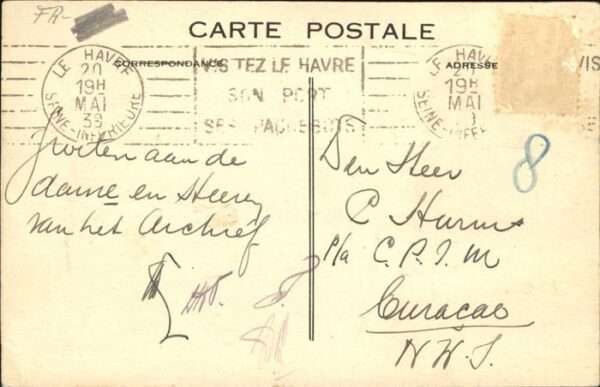 FR-
CARTE POSTALE
CORRESPONDANCE
ADRESSE
LE HAVRE
20
19H
MAI
SEINE-INFÉRIEURE
VISITEZ LE HAVRE
SON PORT
SES PAQUEBOTS
LE HAVRE
19H
MAI
SEINE-INFÉ
VIS
Groeten aan de
dame en Heeren
van het Archief
Den Heer
C
p/a C.P.I.M
Curaçao
N.W.I.
8